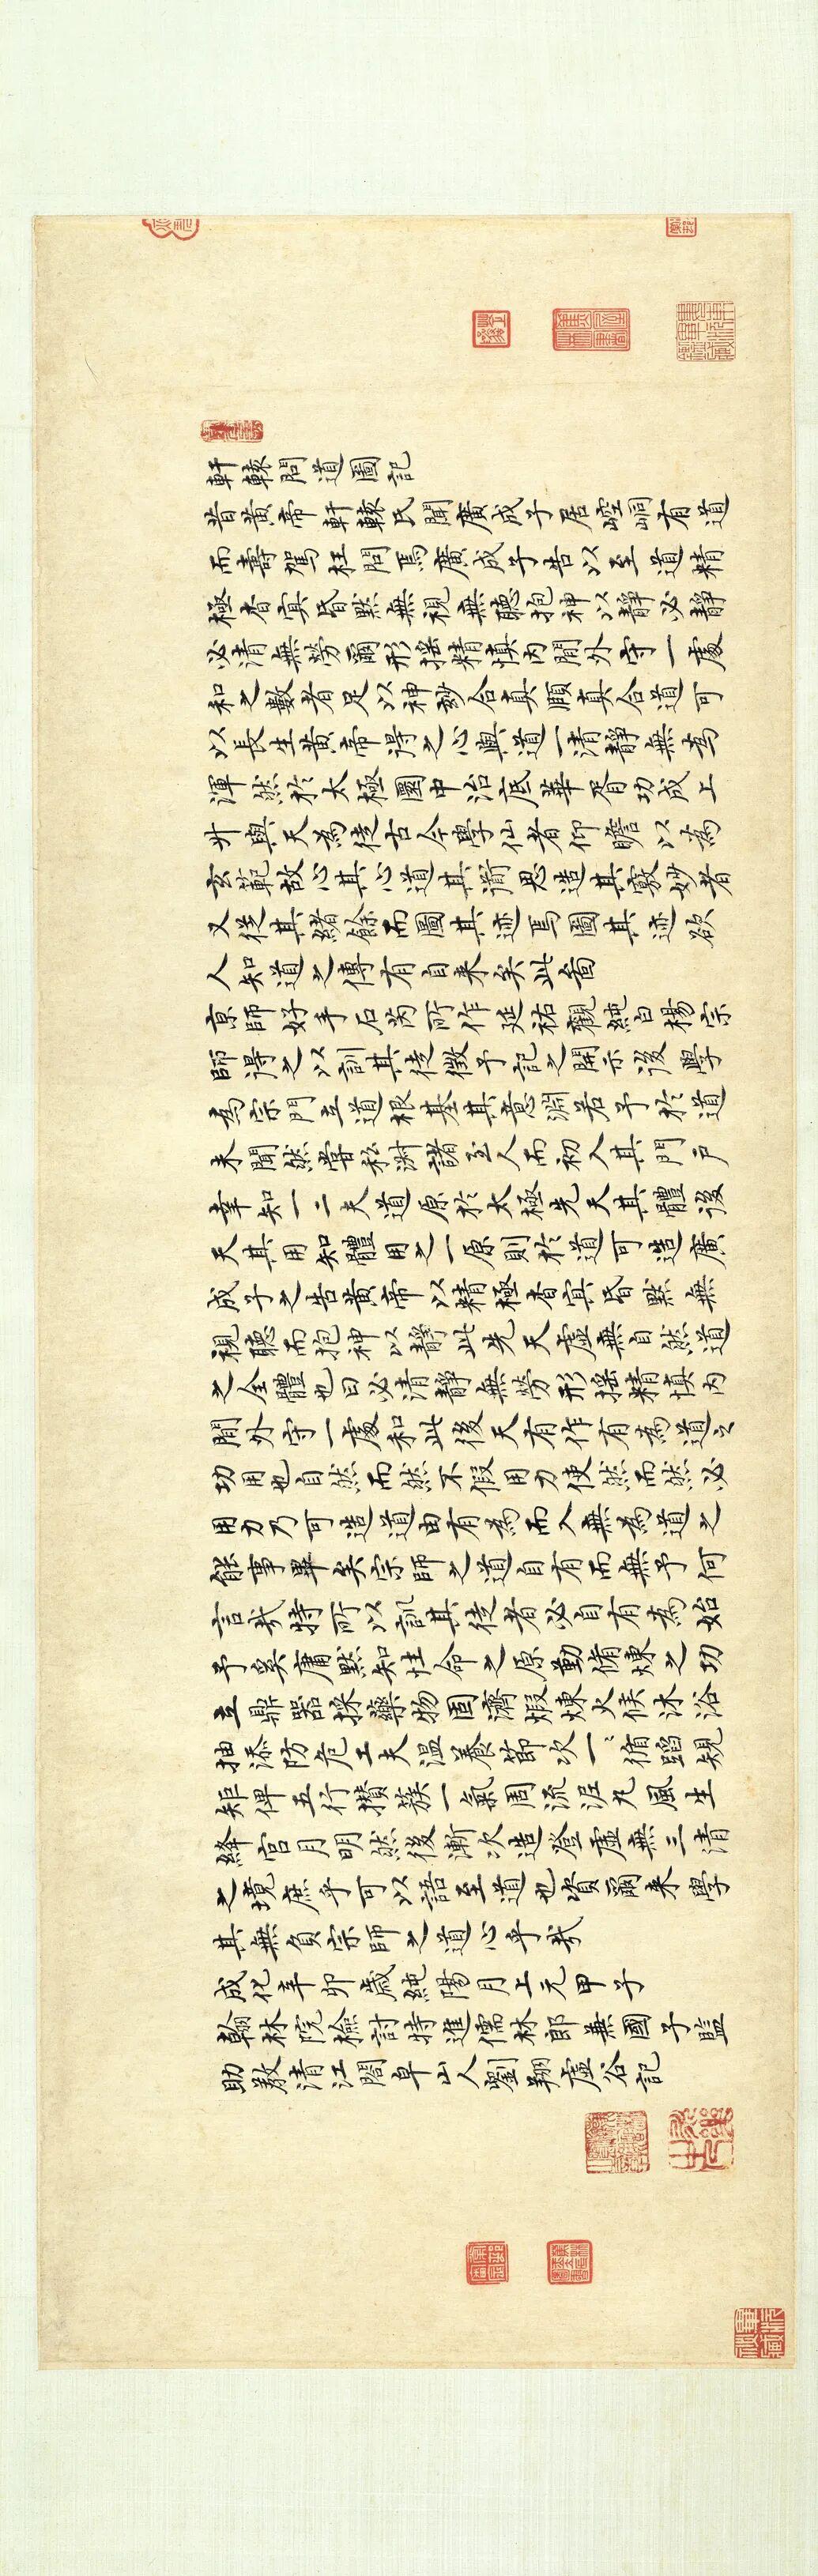 軒轅問道圖記
昔黃帝軒轅氏聞廣成子居崆峒有道
而壽駕往問焉廣成子告以至道精
極杳冥昏默無視無聽抱神以靜必靜
必清無勞爾形搖精慎內閉外守一處
和之數者足以神妙合真頤真合道可
以長生黃帝得之心與道一清靜無為
渾然於太極圈中治底華胥功成上
升與天為徒古今學仙者仰瞻以為
玄範故心其心道其道思造其竅妙者
又從其緒餘而圖其迹焉圖其迹欲
人知道之傳有自来矣此啚
京師好手石芮所作延祐觀純白楊宗
師得之以訓其徒徵予記之開示後學
為宗門立道根基其意淵若予於道
未聞然嘗私淑諸至人而初入其門戶
幸知一二夫道原於太極先天其體後
天其用知體用之一原則於道可造廣
成子之告黃帝以精極杳冥昏默無
視聽而抱神以靜此先天虛無自然道
之全體也曰必清靜無勞形搖精慎內
閉外守一處和此後天有作有為道之
功用也自然而然不假用力使然而然必
用力乃可造道由有為而入無為道之
能事畢矣宗師之道自有而無予何
言哉特所以訓其徒者必自有為始
予奚庸默知性命之原勤脩煉之功
立鼎器採藥物固濟煅煉火候沐浴
抽添防危工夫溫養節次一〻循蹈規
矩俾五行攢簇一氣周流泥丸風生
絳宮月明然後漸次造登虛無三清
之境庶乎可以語至道也資爾来學
其無負宗師之道心乎哉
成化辛卯歲純陽月上元甲子
翰林院檢討特進儒林郎兼國子監
助教清江閤阜山人劉翔虛谷記